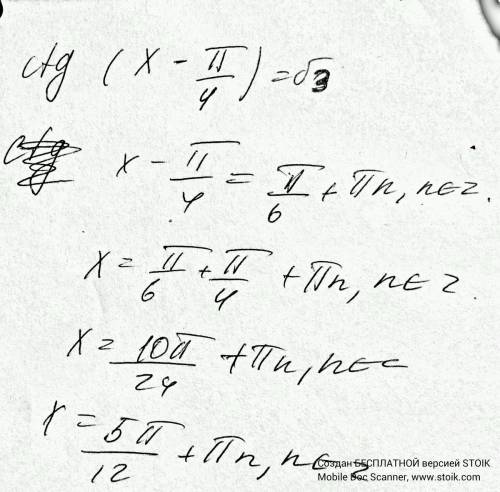 ctg (x - π/4) = √3
x - π/4 = π/6 + πn, n∈z.
x = π/6 + π/4 + πn, n∈z
x = 10π/24 + πn, n∈
x = 5π/12 + πn, n∈z
Создан БЕСПЛАТНОЙ версией STOIK
Mobile Doc Scanner, www.stoik.com